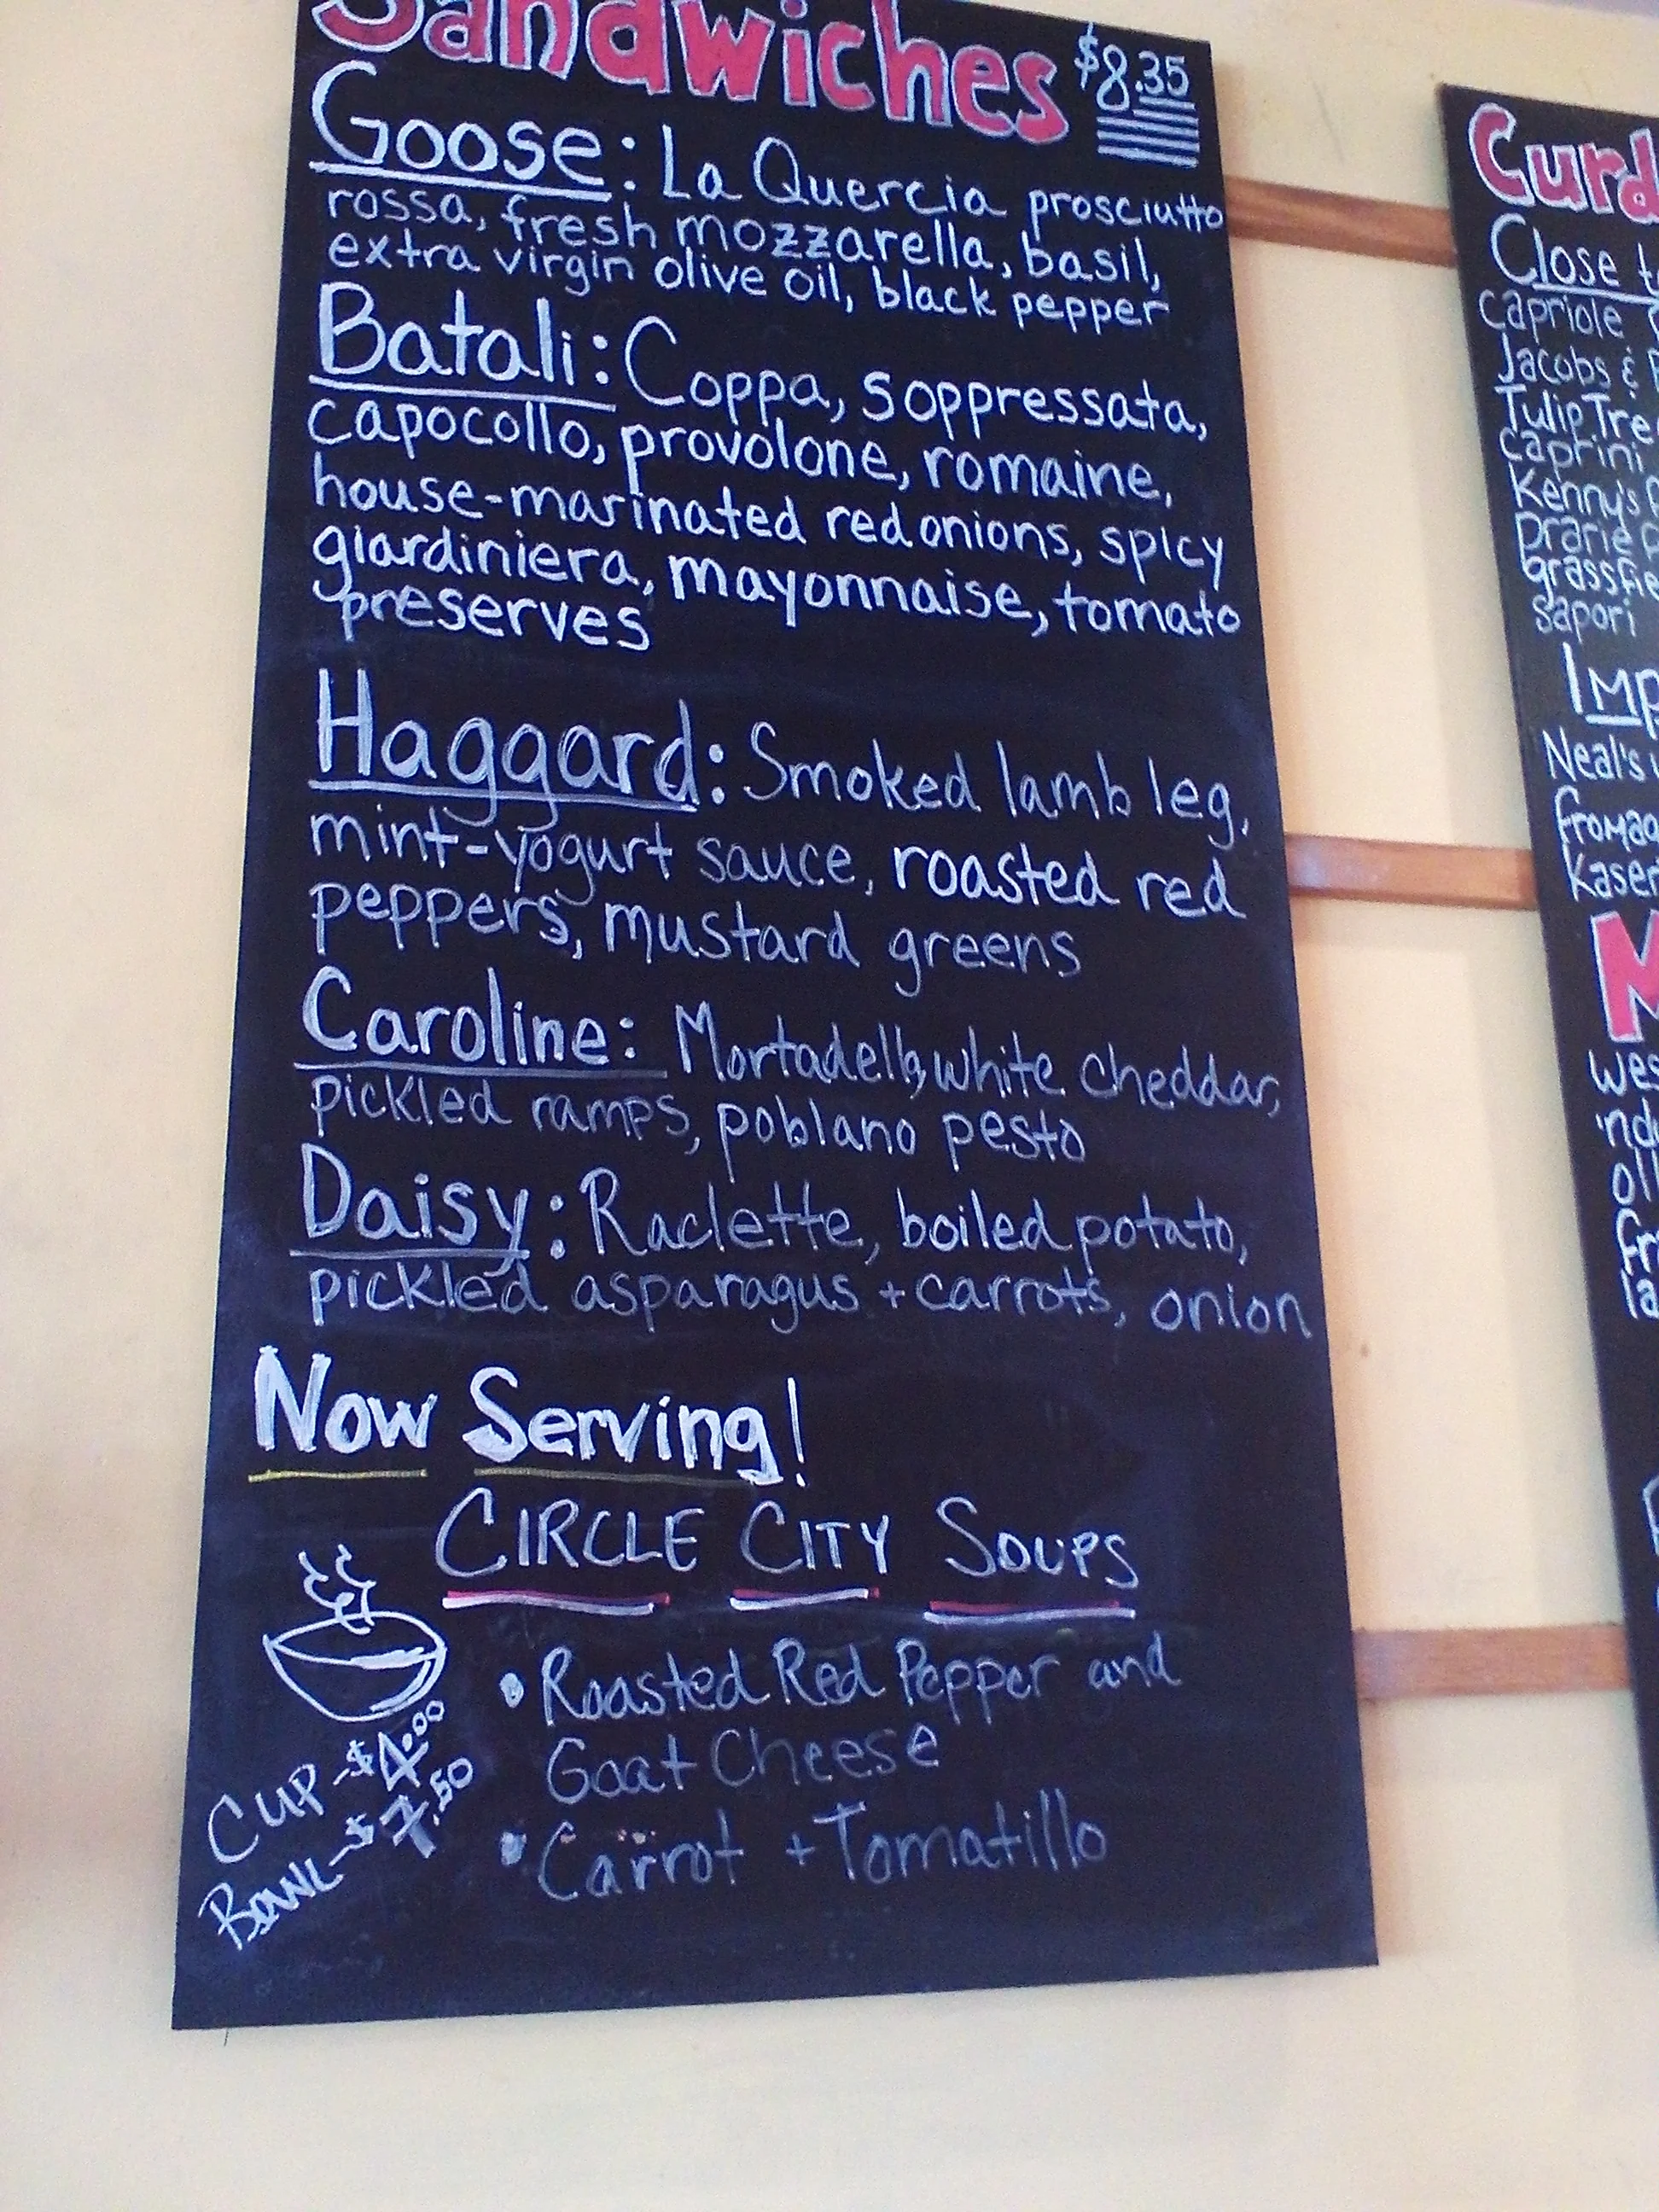 Sandwiches $8.35
Goose: La Quercia prosciutto
rossa, fresh mozzarella, basil,
extra virgin olive oil, black pepper
Batali: Coppa, soppressata,
capocollo, provolone, romaine,
house-marinated red onions, spicy
giardiniera, mayonnaise, tomato
preserves
Haggard: Smoked lamb leg,
mint-yogurt sauce, roasted red
peppers, mustard greens
Caroline: Mortadella, white cheddar,
pickled ramps, poblano pesto
Daisy: Raclette, boiled potato,
pickled asparagus + carrots, onion
Now Serving!
CIRCLE CITY SOUPS
• Roasted Red Pepper and
Goat Cheese
• Carrot + Tomatillo
CUP - $4.00
BOWL - $7.50
Curd
Close
capriole
Jacobs &
Tulip Tree
caprini
Kenny's
Prarie
grassfie
sapori
Imp
Neal's
fromag
Kaser
M
wes
indu
oli
fr
la